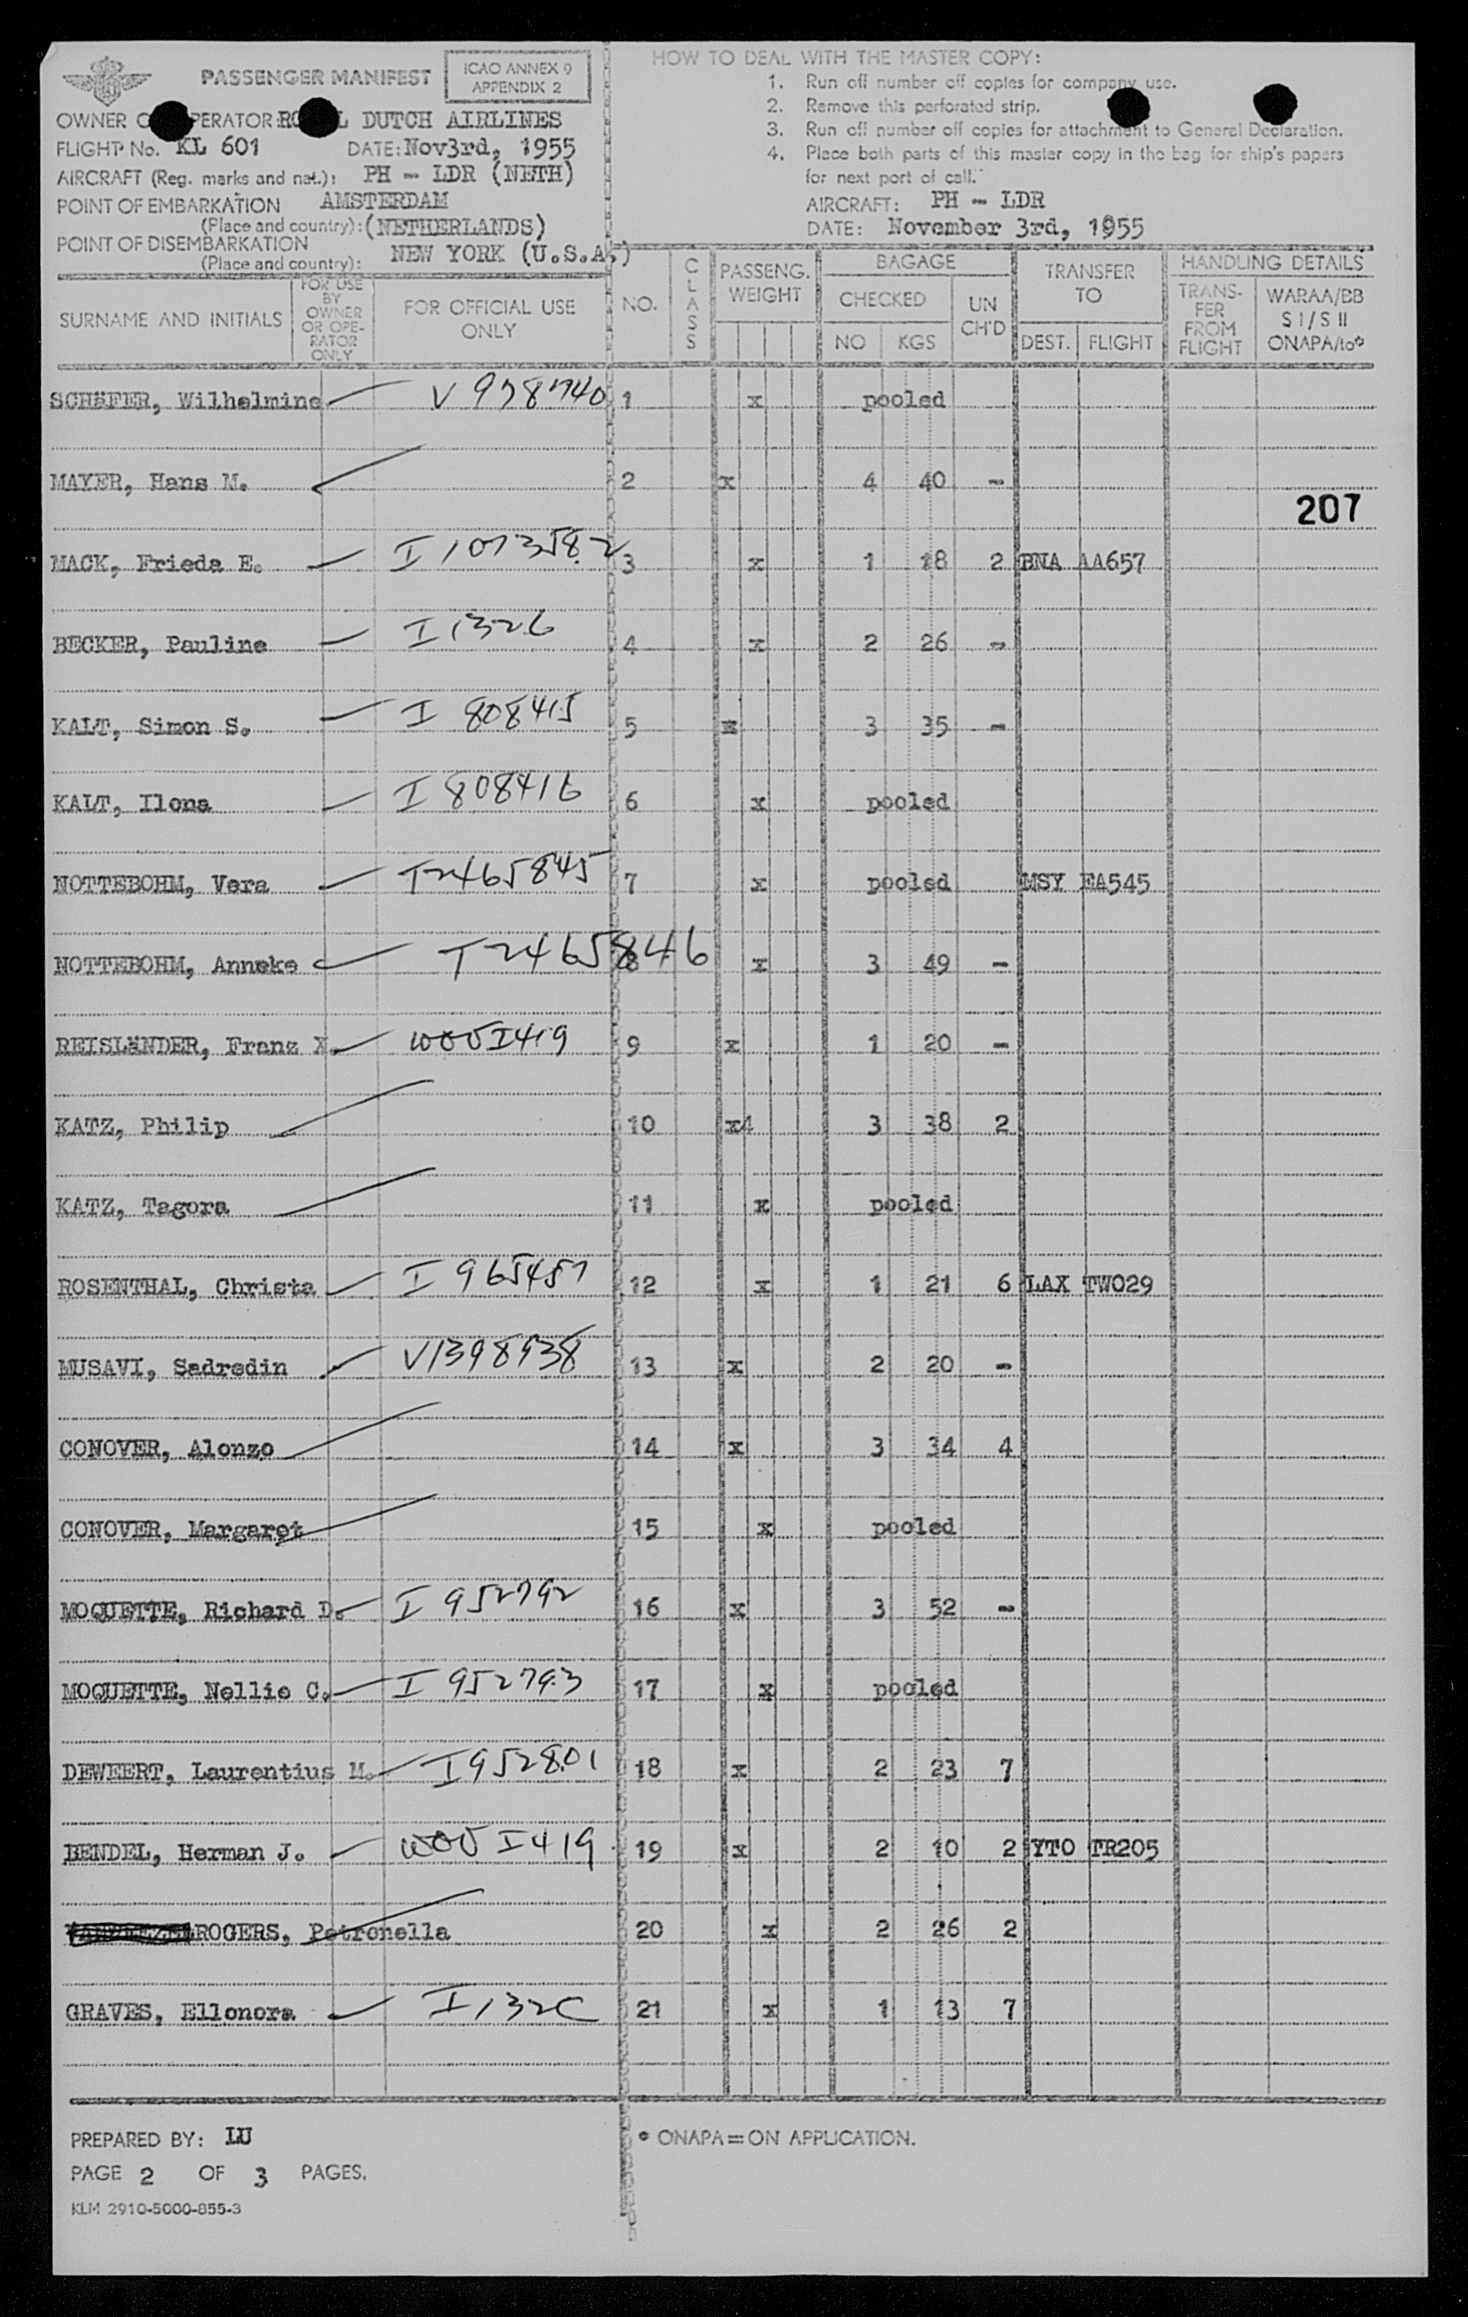 PASSENGER MANIFEST
ICAO ANNEX 9
APPENDIX 2
OWNER O PERATOR: RO L DUTCH AIRLINES
FLIGHT No. KL 601 DATE: Nov3rd, 1955
AIRCRAFT (Reg. marks and nat.): PH - LDR (NETH)
POINT OF EMBARKATION AMSTERDAM
(Place and country): (NETHERLANDS)
POINT OF DISEMBARKATION
(Place and country): NEW YORK (U.S.A.)
HOW TO DEAL WITH THE MASTER COPY:
1. Run off number off copies for company use.
2. Remove this perforated strip.
3. Run off number off copies for attachment to General Declaration.
4. Place both parts of this master copy in the bag for ship's papers
for next port of call.
AIRCRAFT: PH - LDR
DATE: November 3rd, 1955
SURNAME AND INITIALS
FOR USE
BY
OWNER
OR OPE-
RATOR
ONLY
FOR OFFICIAL USE
ONLY
NO.
CLASS
PASSENG.
WEIGHT
BAGAGE
CHECKED
NO KGS
UN
CH'D
TRANSFER
TO
DEST. FLIGHT
HANDLING DETAILS
TRANS-
FER
FROM
FLIGHT
WARAA/BB
S I/S II
ONAPA/to*
SCHÄFER, Wilhelmine V 978740 1 x pooled
MAYER, Hans M. 2 x 4 40 -
207
MACK, Frieda E. I 1073582 3 x 1 18 2 BNA AA657
BECKER, Pauline I 1326 4 x 2 26 -
KALT, Simon S. I 808415 5 x 3 35 -
KALT, Ilona I 808416 6 x pooled
NOTTEBOHM, Vera T2465845 7 x pooled MSY EA545
NOTTEBOHM, Anneke T2465846 8 x 3 49 -
REISLÄNDER, Franz X. I419 9 x 1 20 -
KATZ, Philip 10 x4 3 38 2
KATZ, Tagora 11 x pooled
ROSENTHAL, Christa I 965457 12 x 1 21 6 LAX TW029
MUSAVI, Sadredin V1398938 13 x 2 20 -
CONOVER, Alonzo 14 x 3 34 4
CONOVER, Margaret 15 x pooled
MOQUETTE, Richard D. I 952792 16 x 3 52 -
MOQUETTE, Nellie C. I 952793 17 x pooled
DEWEERT, Laurentius M. I952801 18 x 2 23 7
BENDEL, Herman J. I419 19 x 2 10 2 YTO TR205
ROGERS, Petronella 20 x 2 26 2
GRAVES, Ellonora I132C 21 x 1 13 7
PREPARED BY: LU
* ONAPA=ON APPLICATION.
PAGE 2 OF 3 PAGES.
KLM 2910-5000-855-3